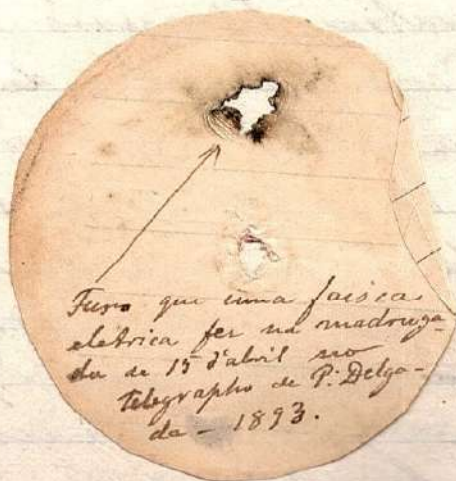 Furo que uma faisca
eletrica fez na madruga-
da de 15 d'abril no
telegrapho de P. Delga-
da – 1893.